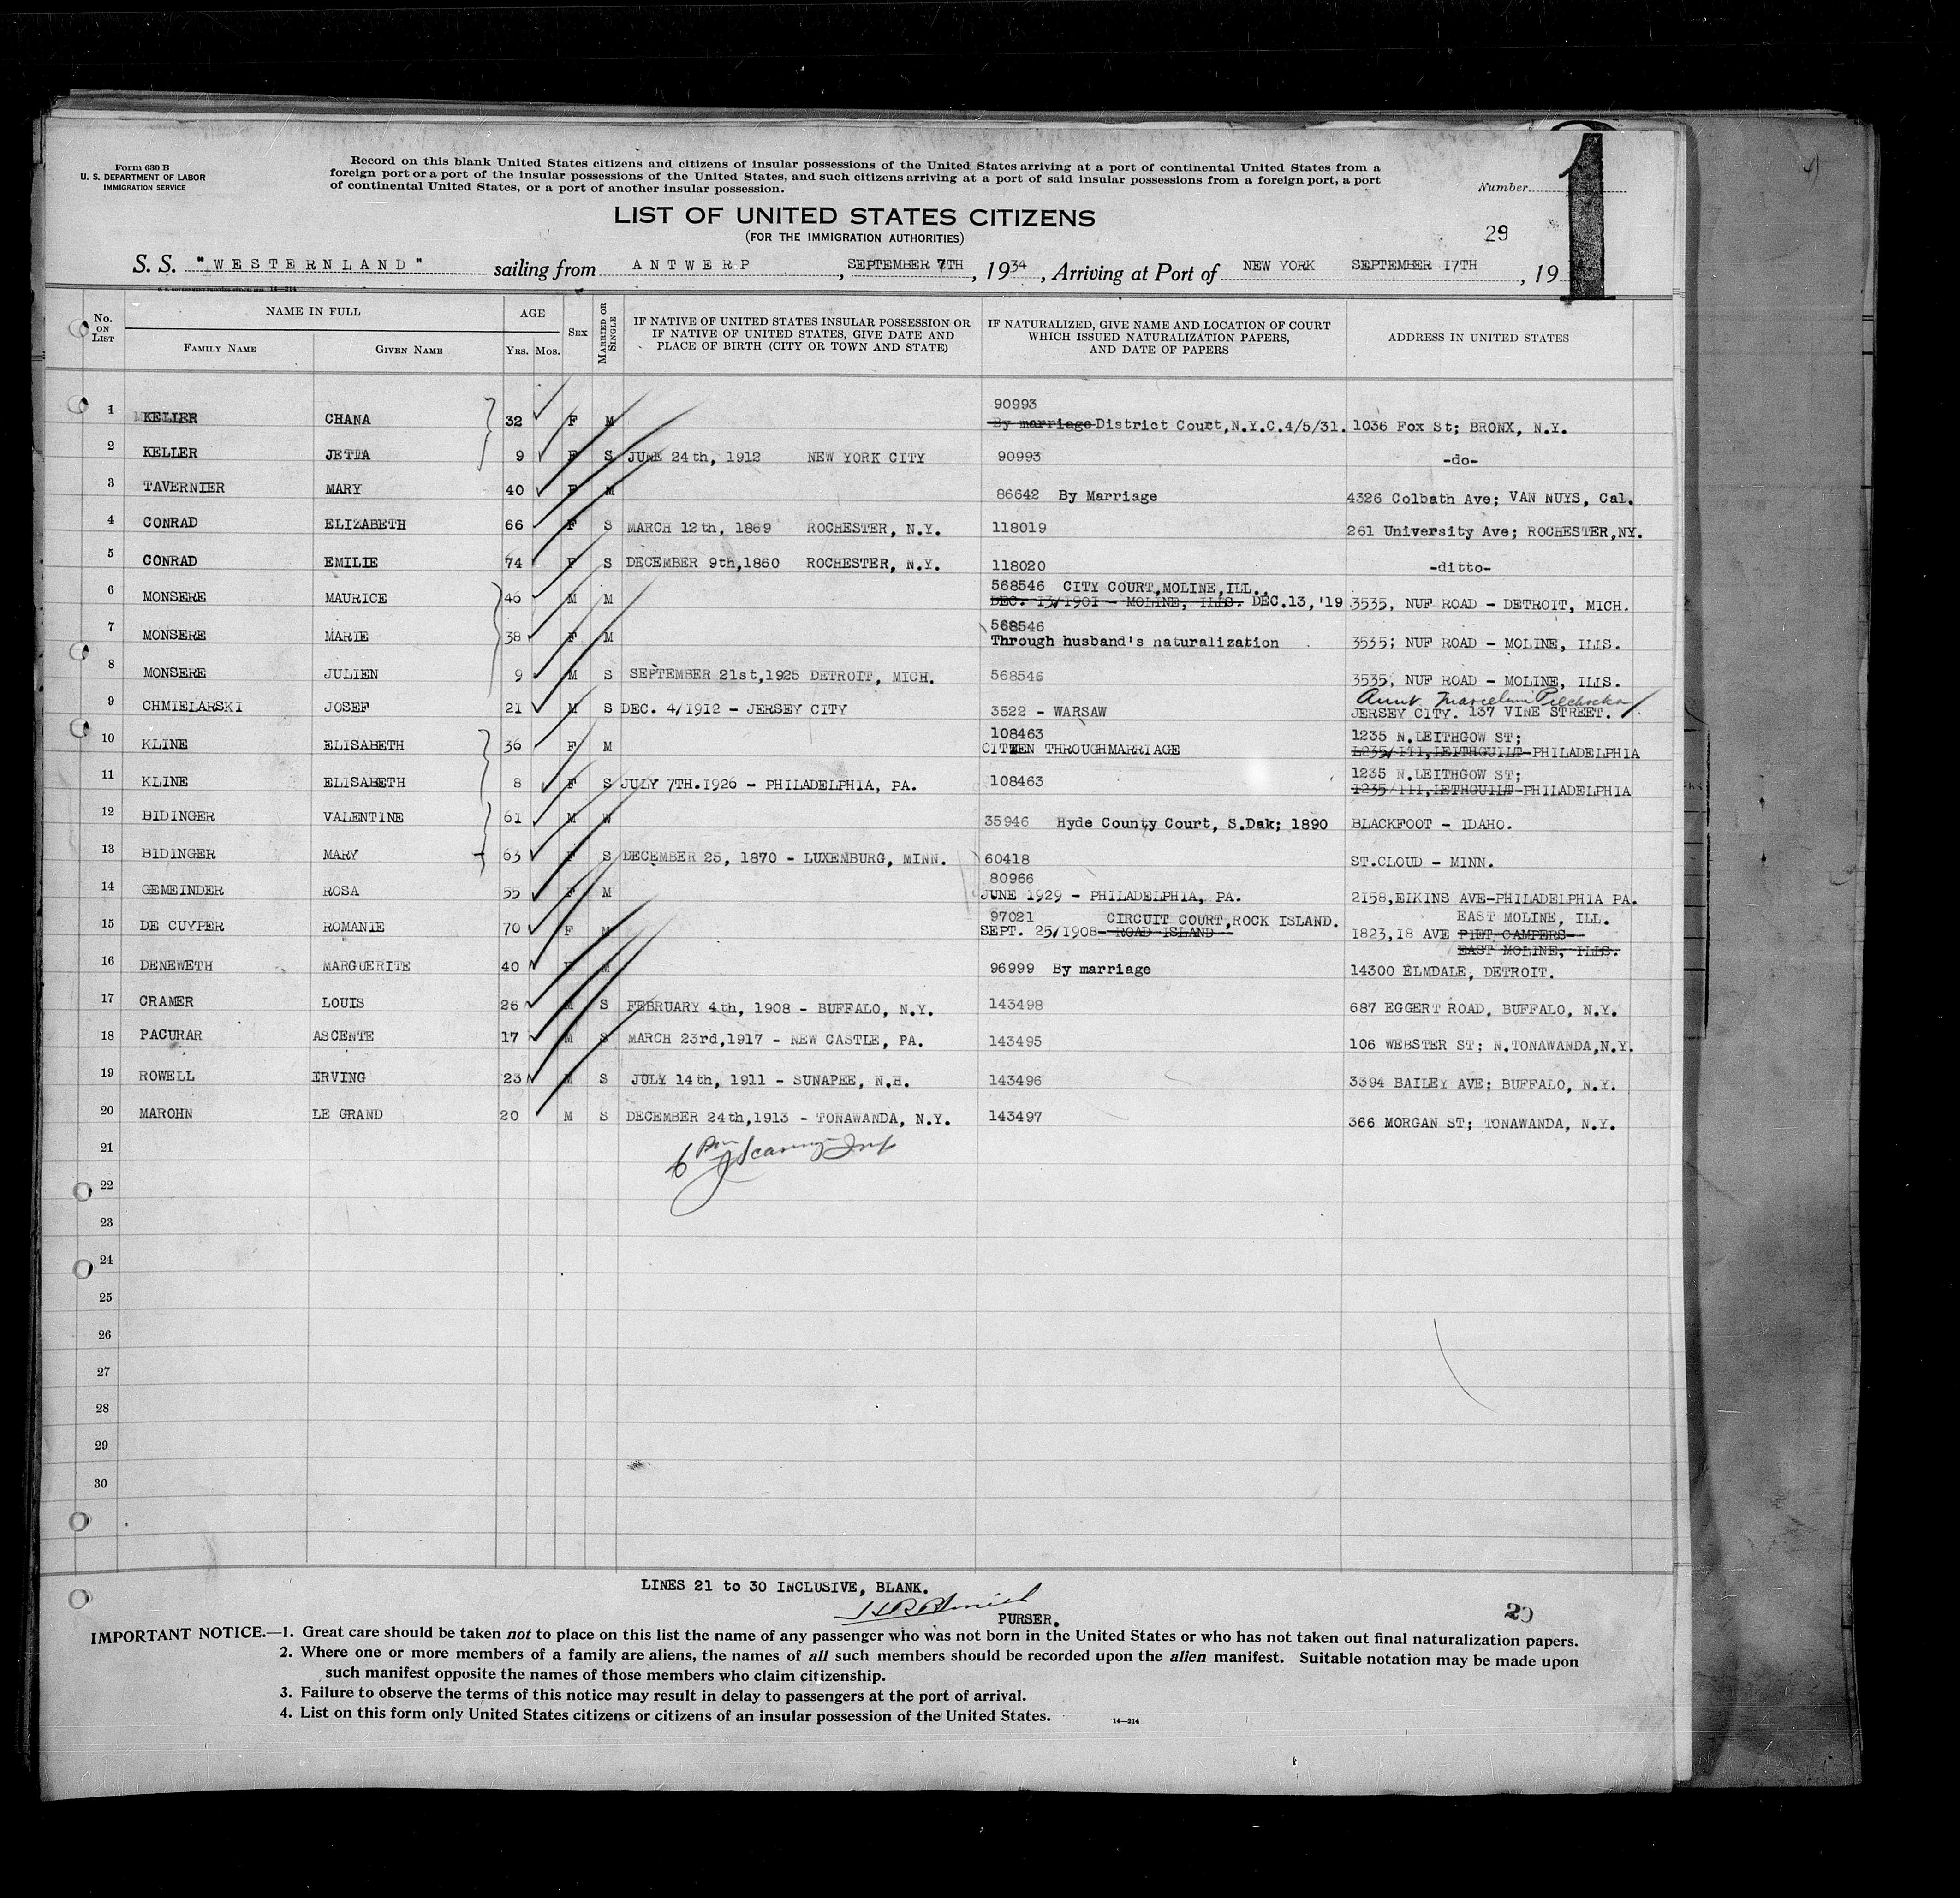 Form 630 B
U. S. DEPARTMENT OF LABOR
IMMIGRATION SERVICE
Record on this blank United States citizens and citizens of insular possessions of the United States arriving at a port of continental United States from a
foreign port or a port of the insular possessions of the United States, and such citizens arriving at a port of said insular possessions from a foreign port, a port
of continental United States, or a port of another insular possession.
Number
1
LIST OF UNITED STATES CITIZENS
(FOR THE IMMIGRATION AUTHORITIES)
29
S. S. "WESTERNLAND" sailing from ANTWERP, SEPTEMBER 7TH, 1934, Arriving at Port of NEW YORK SEPTEMBER 17TH, 19
No. ON LIST NAME IN FULL AGE SEX MARRIED OR SINGLE IF NATIVE OF UNITED STATES INSULAR POSSESSION OR IF NATIVE OF UNITED STATES, GIVE DATE AND PLACE OF BIRTH (CITY OR TOWN AND STATE) IF NATURALIZED, GIVE NAME AND LOCATION OF COURT WHICH ISSUED NATURALIZATION PAPERS, AND DATE OF PAPERS ADDRESS IN UNITED STATES
FAMILY NAME GIVEN NAME YRS. MOS.
90993
1 KELLER CHANA 32 F M By marriage District Court,N.Y.C.4/5/31. 1036 Fox St; BRONX, N.Y.
2 KELLER JETTA 9 F S JUNE 24th, 1912 NEW YORK CITY 90993 -do-
3 TAVERNIER MARY 40 F M 86642 By Marriage 4326 Colbath Ave; VAN NUYS, Cal.
4 CONRAD ELIZABETH 66 F S MARCH 12th, 1869 ROCHESTER, N.Y. 118019 261 University Ave; ROCHESTER,NY.
5 CONRAD EMILIE 74 F S DECEMBER 9th,1860 ROCHESTER, N.Y. 118020 -ditto-
568546 CITY COURT,MOLINE,ILL.
6 MONSERE MAURICE 46 M M DEC. 13/1901 - MOLINE, ILLS. DEC.13,'19 3535, NUF ROAD - DETROIT, MICH.
568546
7 MONSERE MARIE 38 F M Through husband's naturalization 3535; NUF ROAD - MOLINE, ILLS.
8 MONSERE JULIEN 9 M S SEPTEMBER 21st,1925 DETROIT, MICH. 568546 3535, NUF ROAD - MOLINE, ILLS.
Aunt
9 CHMIELARSKI JOSEF 21 M S DEC. 4/1912 - JERSEY CITY 3522 - WARSAW JERSEY CITY. 137 VINE STREET.
108463 1235 N.LEITHGOW ST;
10 KLINE ELISABETH 36 F M CITIZEN THROUGHMARRIAGE 1235/111,LEITHGUILT-PHILADELPHIA
1235 N.LEITHGOW ST;
11 KLINE ELISABETH 8 F S JULY 7TH.1926 - PHILADELPHIA, PA. 108463 1235/111,LETHGUILT-PHILADELPHIA
12 BIDINGER VALENTINE 61 M W 35946 Hyde County Court, S.Dak; 1890 BLACKFOOT - IDAHO.
13 BIDINGER MARY 63 F S DECEMBER 25, 1870 - LUXEMBURG, MINN. 60418 ST.CLOUD - MINN.
80966
14 GEMEINDER ROSA 55 F M JUNE 1929 - PHILADELPHIA, PA. 2158,ELKINS AVE-PHILADELPHIA PA.
97021 CIRCUIT COURT,ROCK ISLAND. EAST MOLINE, ILL.
15 DE CUYPER ROMANIE 70 F M SEPT. 25/1908- ROAD ISLAND - 1823,18 AVE PIET CAMPERS-
EAST MOLINE, ILLS.
16 DENEWETH MARGUERITE 40 F M 96999 By marriage 14300 ELMDALE, DETROIT.
17 CRAMER LOUIS 26 M S FEBRUARY 4th, 1908 - BUFFALO, N.Y. 143498 687 EGGERT ROAD, BUFFALO, N.Y.
18 PACURAR ASCENTE 17 M S MARCH 23rd,1917 - NEW CASTLE, PA. 143495 106 WEBSTER ST; N.TONAWANDA,N.Y.
19 ROWELL IRVING 23 M S JULY 14th, 1911 - SUNAPEE, N.H. 143496 3394 BAILEY AVE; BUFFALO, N.Y.
20 MAROHN LE GRAND 20 M S DECEMBER 24th,1913 - TONAWANDA, N.Y. 143497 366 MORGAN ST; TONAWANDA, N.Y.
21
22
23
24
25
26
27
28
29
30
LINES 21 to 30 INCLUSIVE, BLANK.
PURSER.
IMPORTANT NOTICE.—1. Great care should be taken not to place on this list the name of any passenger who was not born in the United States or who has not taken out final naturalization papers.
2. Where one or more members of a family are aliens, the names of all such members should be recorded upon the alien manifest. Suitable notation may be made upon
such manifest opposite the names of those members who claim citizenship.
3. Failure to observe the terms of this notice may result in delay to passengers at the port of arrival.
4. List on this form only United States citizens or citizens of an insular possession of the United States.
14—214